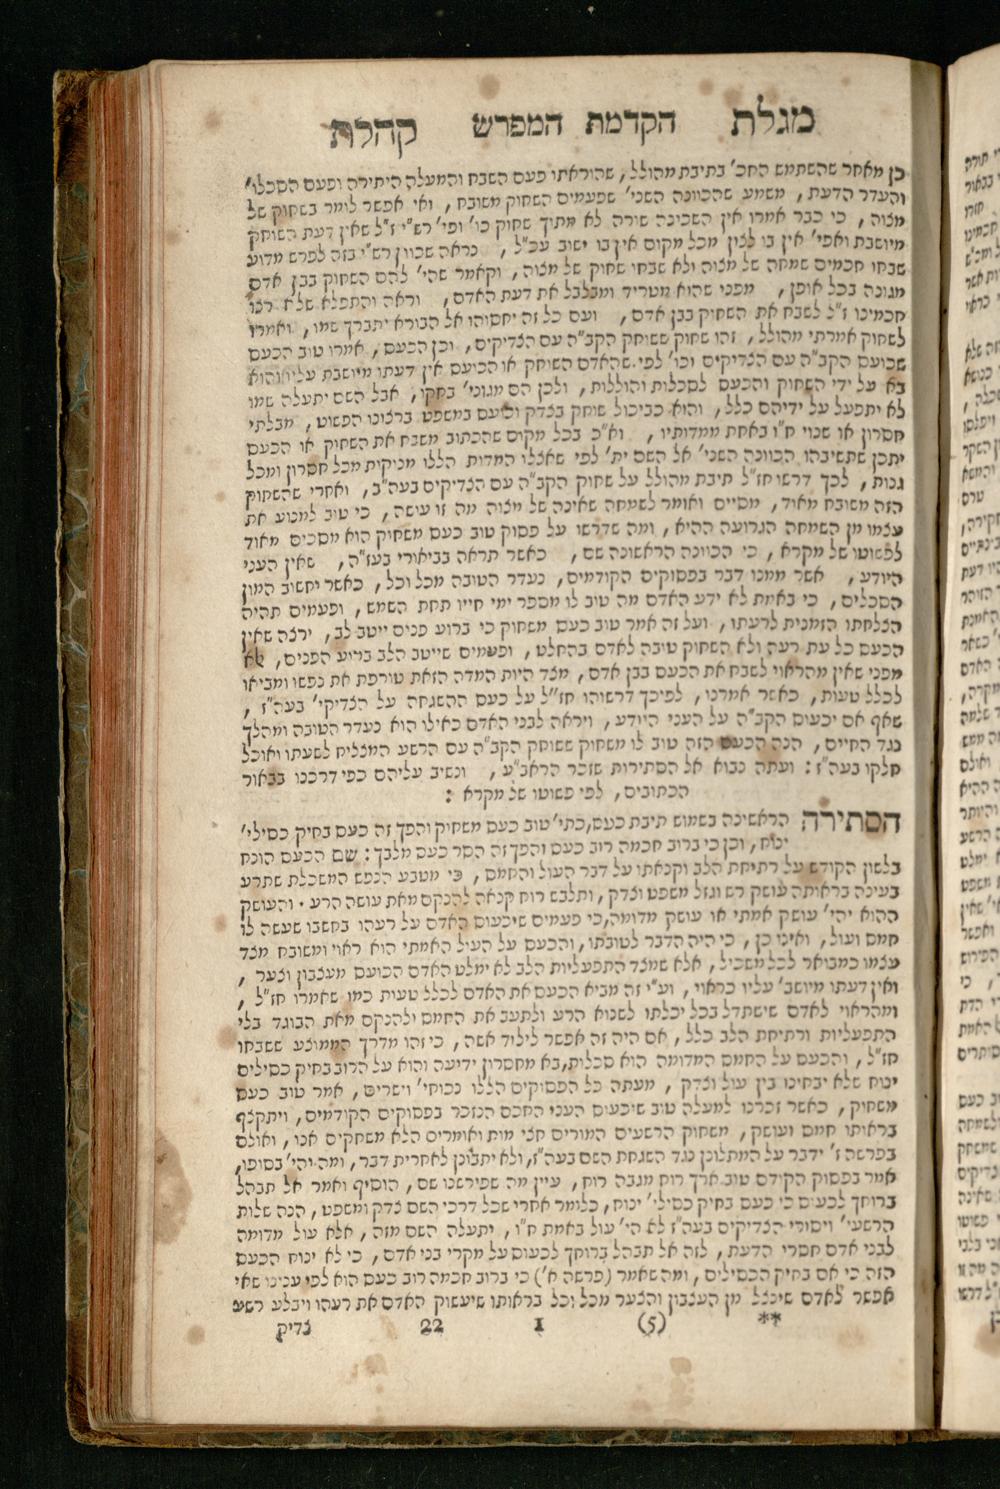 מגלת הקדמת המפרש קהלת
כן מאחר שהשתמש החכ' בתיבת מהולל, שהוראתו פעם השבח והמעלה היתירה ופעם הסכלו'
והעדר הדעת, משמע שהכוונה השני' שפעמים השחוק משובח, ואי אפשר לומר בשחוק של
מצוה, כי כבר אמרו אין השכינה שורה לא מתוך שחוק כו' ופי' רש"י ז"ל שאין דעת השוחק
מיושבת ואפי' אין בו לצון מכל מקום אין בו ישוב עכ"ל, כראה שכוון רש"י בזה לפרש מדוע
שבחו חכמים שמחה של מצוה ולא שבחו שחוק של מצוה, וקאמר שהי' להם השחוק בבן אדם
מגונה בכל אופן, מפני שהוא מטריד ומבלבל את דעת האדם, וראה והתפלא שלא רצו
חכמינו ז"ל לשבח את השחוק בבן אדם, ועם כל זה יחסוהו אל הבורא יתברך שמו, ואמרו
לשחוק אמרתי מהולל, זהו שחוק ששוחק הקב"ה עם הצדיקים, וכן הכעס, אמרו טוב הכעס
שכועס הקב"ה עם הצדיקים וכו' לפי שהאדם השוחק או הכועס אין דעתו מיושבת עליו והוא
בא על ידי השחוק והכעס לסכלות והוללות, ולכן הם מגוני' בחקו, אבל השם יתעלה שמו
לא יתפעל על ידיהם כלל, והוא כביכול שוחק בצדק וכועס במשפט ברצונו הפשוט, מבלתי
חסרון או שנוי ח"ו באחת ממדותיו, וא"כ בכל מקום שהכתוב משבח את השחוק או הכעס
יתכן שתשיבהו הכוונה השני' אל השם ית' לפי שאצלו המדות הללו מנוקות מכל חסרון ומכל
גנות, לכך דרשו חז"ל תיבת מהולל על שחוק הקב"ה עם הצדיקים בעה"ב, ואחרי שהשחוק
הזה משובח מאוד, מסיים ואומר לשמחה שאינה של מצוה מה זו עושה, כי טוב למנוע את
עצמו מן השמחה הגרועה ההיא, ומה שדרשו על פסוק טוב כעס משחוק הוא מסכים מאוד
לפשוטו של מקרא, כי הכוונה הראשונה שם, כאשר תראה בביאורי בעז"ה, שאין העני
היודע, אשר ממנו דבר בפסוקים הקודמים, נעדר הטובה מכל וכל, כאשר יחשוב המון
הסכלים, כי באמת לא ידע האדם מה טוב לו מספר ימי חייו תחת השמש, ופעמים תהיה
הצלחתו הזמנית לרעתו, ועל זה אמר טוב כעס משחוק כי ברוע פנים ייטב לב, ירצה שאין
הכעס כל עת רעה ולא השחוק טובה לאדם בהחלט, ופעמים שייטב הלב ברוע הפנים, לא
מפני שאין מהראוי לשבח את הכעס בבן אדם, מצד היות המדה הזאת טורפת את נפשו ומביאו
לכלל טעות, כאשר אמרנו, לפיכך דרשוהו חז"ל על כעס ההשגחה על הצדיקי' בעה"ז,
שאף אם יכעוס הקב"ה על העני היודע, ויראה לבני האדם כאילו הוא נעדר הטובה ומהלך
נגד החיים, הנה הכעס הזה טוב לו משחוק ששוחק הקב"ה עם הרשע המצליח לשעתו ואוכל
חלקו בעה"ז: ועתה נבוא אל הסתירות שזכר הראב"ע, ונשיב עליהם כפי דרכנו בבאור
הכתובים, לפי פשוטו של מקרא:
הסתירה הראשינה בשמוש תיבת כעס, כתי' טוב כעס משחוק והפך זה כעס בחיק כסילי'
ינוח, וכן כי ברוב חכמה רוב כעס והפך זה הסר כעס מלבך: שם הכעס הונח
בלשון הקודש על רתיחת הלב וקנאתו על דבר העול והחמס, כי מטבע הנפש המשכלת שתרע
בעינה בראותה עושק רש וגזל משפט וצדק, ותלבש רוח קנאה להנקם מאת עושה הרע. והעושק
ההוא יהי' עושק אמתי או עושק מדומה, כי פעמים שיכעוס האדם על רעהו בחשבו שעשה לו
חמס ועול, ואינו כן, כי היה הדבר לטובתו, והכעס על העול האמתי הוא ראוי ומשובח מצד
עצמו כמבואר לכל משכיל, אלא שמצד התפעליות הלב לא ימלט האדם הכועס מעצבון וצער,
ואין דעתו מיושב' עליו כראוי, וע"י זה מביא הכעס את האדם לכלל טעות כמו שאמרו חז"ל,
ומהראוי לאדם שישתדל בכל יכלתו לשנוא הרע ולתעב את החמס ולהנקם מאת הבוגד בלי
התפעליות ורתיחת הלב כלל, אם היה זה אפשר לילוד אשה, כי זהו מדרך הממוצע ששבחו
חז"ל, והכעס על החמס המדומה הוא סכלות, בא מחסרון ידיעה והוא על הרוב בחיק כסילים
ינוח שלא יבחינו בין עול וצדק, מעתה כל הפסוקים הללו נכוחי' וישרים, אמר טוב כעס
משחוק, כאשר זכרנו למעלה טוב שיכעוס העני החכם הנזכר בפסוקים הקודמים, ויתקצף
בראותו חמס ועושק, משחוק הרשעים המורים חצי מות ואומרים הלא משחקים אנו, ואולם
בפרשה ז' ידבר על המתלונן נגד השגחת השם בעה"ז, ולא יתבונן לאחרית דבר, ומה יהי' בסופו,
אמר בפסוק הקודם טוב ארך רוח מגבה רוח, עיין מה שפירשנו שם, הוסיף ואמר אל תבהל
ברוחך לכעוס כי כעס בחיק כסילי' ינוח, כלומר אחרי שכל דרכי השם צדק ומשפט, הנה שלות
הרשעי' ויסורי הצדיקים בעה"ז לא הי' עול באמת ח"ו, יתעלה השם מזה, אלא עול מדומה
לבני אדם חסרי הדעת, לזה אל תבהל ברוחך לכעוס על מקרי בני אדם, כי לא ינוח הכעס
הזה כי אם בחיק הכסילים, ומה שאמר (פרשה א') כי ברוב חכמה רוב כעס הוא לפי ענינו שאי
אפשר לאדם שינצל מן העצבון והצער מכל וכל בראותו שיעשוק האדם את רעהו ויבלע רשע
** (5) I 22 צדיק